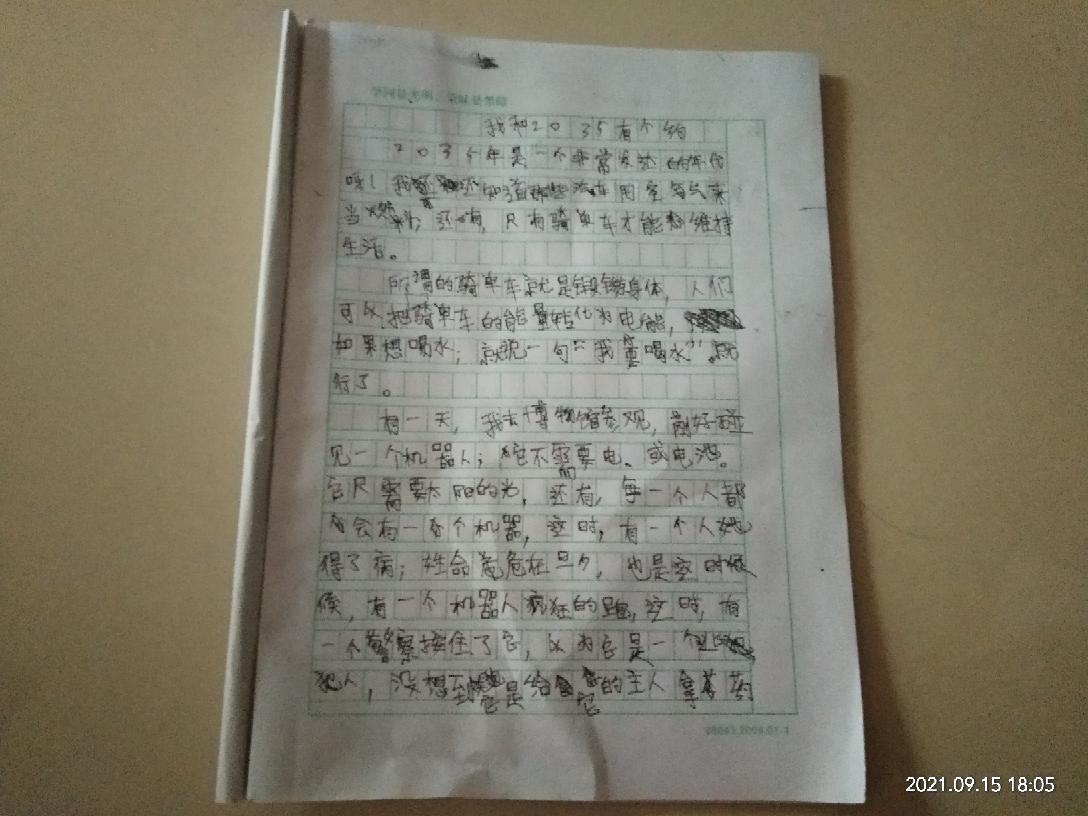 学问是光明，愚昧是黑暗
我和2035有个约
2035年是一个非常发达的年代
呀！我还知道那些汽车用空气来
当燃料；还有，只有骑单车才能维持
生活。
所谓的骑单车就是锻锻身体，人们
可以把骑单车的能量转化为电能，
如果想喝水；就说一句“我要喝水”就
行了。
有一天，我去博物馆参观，刚好碰
见一个机器人；它不需要电、或电池。
它只需要太阳的光，还有，每一个人都
会有一个机器，这时，有一个人
得了病；姓命危在旦夕，也是这时候
候，有一个机器人疯狂的跑，这时，有
一个警察接住了它，以为它是一个
犯人，没想到它是给它的主人拿着药
2021.09.15 18:05